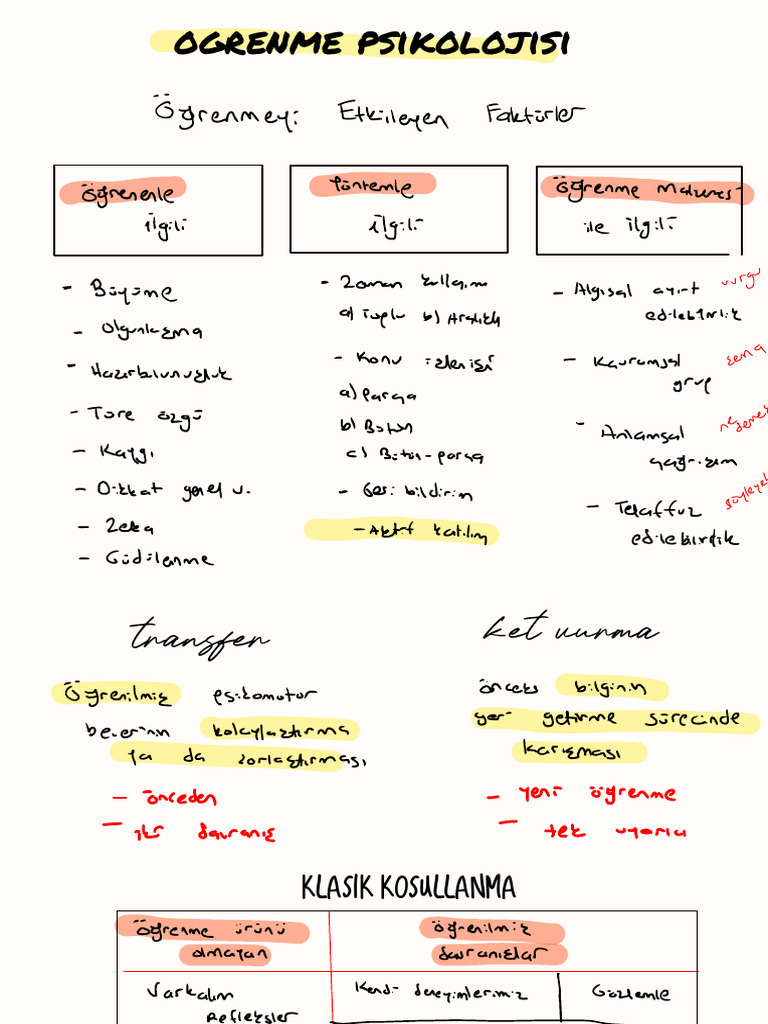 OGRENME PSIKOLOJISI
Öğrenmeyi Etkileyen Faktörler
Öğrenenle
ilgili
- Büyüme
- Olgunlaşma
- Hazırbulunuşluk
- Türe özgü
- Kaygı
- Dikkat genel u.
- Zeka
- Güdülenme
Yöntemle
ilgili
- Zaman kullanımı
a) Toplu b) Aralıklı
- Konu
a) parça
b) Bütün
c) Bütün-parça
- Geri bildirim
- Aktif katılım
Öğrenme
ile ilgili
- Algısal ayırt vurgu
edilebilirlik
- Kavramsal şema
grup
- Anlamsal
çağrışım
- Telaffuz
edilebirlik
transfer
Öğrenilmiş psikomotor
becerinin kolaylaştırma
ya da zorlaştırması
- önceden
- iki davranış
ket vurma
önceki bilginin
geri getirme sürecinde
karışması
- yeni öğrenme
- tek uyarıcı
KLASIK KOSULLANMA
Öğrenme ürünü
olmayan
öğrenilmiş
davranışlar
Refleksler
Kendi deneyimlerimiz
Gözlemle